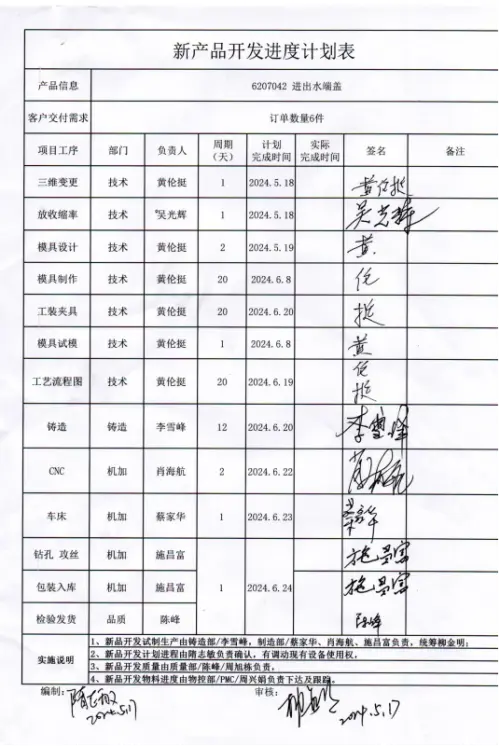 新产品开发进度计划表
产品信息 6207042 进出水端盖
客户交付需求 订单数量6件
项目工序 部门 负责人 周期（天） 计划完成时间 实际完成时间 签名 备注
三维变更 技术 黄伦挺 1 2024.5.18 黄伦挺
放收缩率 技术 吴光辉 1 2024.5.18 吴光辉
模具设计 技术 黄伦挺 2 2024.5.19 黄
模具制作 技术 黄伦挺 20 2024.6.8 伦
工装夹具 技术 黄伦挺 20 2024.6.20 挺
模具试模 技术 黄伦挺 1 2024.6.8 黄
工艺流程图 技术 黄伦挺 20 2024.6.19 伦挺
铸造 铸造 李雪峰 12 2024.6.20 李雪峰
CNC 机加 肖海航 2 2024.6.22
车床 机加 蔡家华 1 2024.6.23 蔡家华
钻孔 攻丝 机加 施昌富 施昌富
包装入库 机加 施昌富 1 2024.6.24 施昌富
检验发货 品质 陈峰 陈峰
实施说明
1、新品开发试制生产由铸造部/李雪峰，制造部/蔡家华、肖海航、施昌富负责，统筹柳金明；
2、新品开发计划进程由隋志敏负责确认，有调动现有设备使用权。
3、新品开发质量由质量部/陈峰/周旭栋负责。
4、新品开发物料进度由物控部/PMC/周兴娟负责下达及跟踪。
编制： 隋志敏 审核：
2024.5.17 2024.5.17